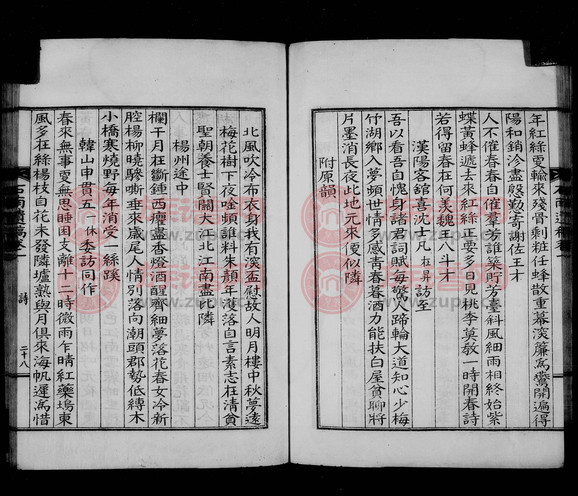 年紅綠更輪來殘骨剩粧任蜂散重幕淡簾為鶯開遍得
陽和銷冷盡慇勤寄謝佐王才
人不催春春自催羣芳誰築所芳臺斜風細雨相終始紫
蝶黃蜂遞去來紅綠正要多日見桃李莫教一時開春詩
若得留春在何羨魏王八斗才
漢陽客舘喜沈士凡在昇訪至
吾以看吾自愧身諸君詞賦每驚人蹄輪大道知心少梅
竹湖鄉入夢頻世情多感青春暮酒力能扶白屋貧聊將
片墨消長夜此地元來便似隣
附原韻
北風吹冷布衣身我有深盃慰故人明月樓中秋夢遠
梅花樹下夜唫頻誰料朱顏年濩落自言素志在清貧
聖朝養士賢關大江北江南盡比隣
楊州途中
欄干月在斷鍾西癯盡香燈酒醒齊細夢落花春女冷新
腔楊柳曉驂嘶垂來歲尾人情別落向潮頭郡勢低縛木
小橋寒燒野每年消受一絲蹊
韓山申貫五一休季訪同作
春來無事更無思睡困支離十二時微雨乍晴紅藥塢東
風多在綠楊枝自花未發隣壚熟與月俱來海帆遲為惜
石南遺稿卷一
詩
二十八